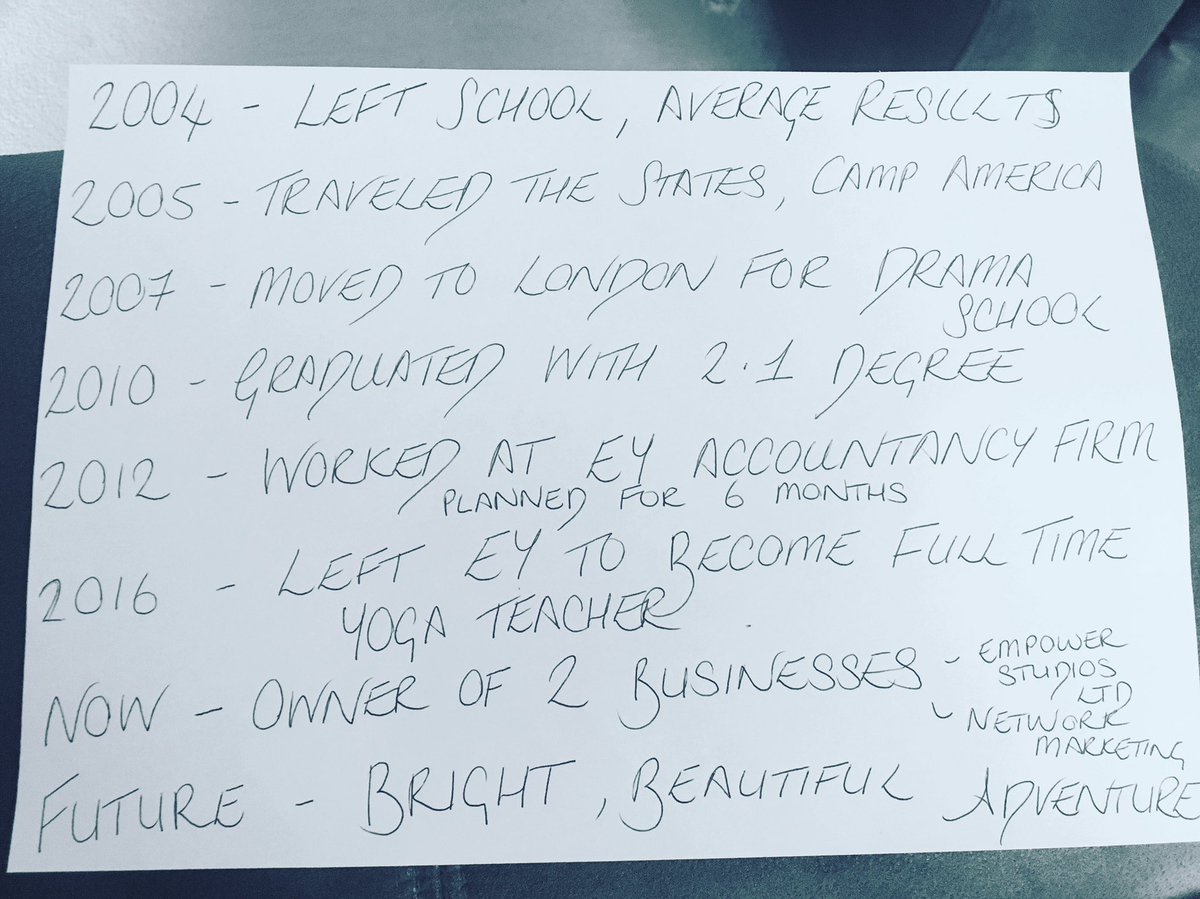 2004 - LEFT SCHOOL, AVERAGE RESULTS
2005 - TRAVELED THE STATES, CAMP AMERICA
2007 - MOVED TO LONDON FOR DRAMA
SCHOOL
2010 - GRADUATED WITH 2.1 DEGREE
2012 - WORKED AT EY ACCOUNTANCY FIRM
PLANNED FOR 6 MONTHS
2016 - LEFT EY TO BECOME FULL TIME
YOGA TEACHER
NOW - OWNER OF 2 BUSINESSES - EMPOWER
STUDIOS
LTD
- NETWORK
MARKETING
FUTURE - BRIGHT, BEAUTIFUL ADVENTURE